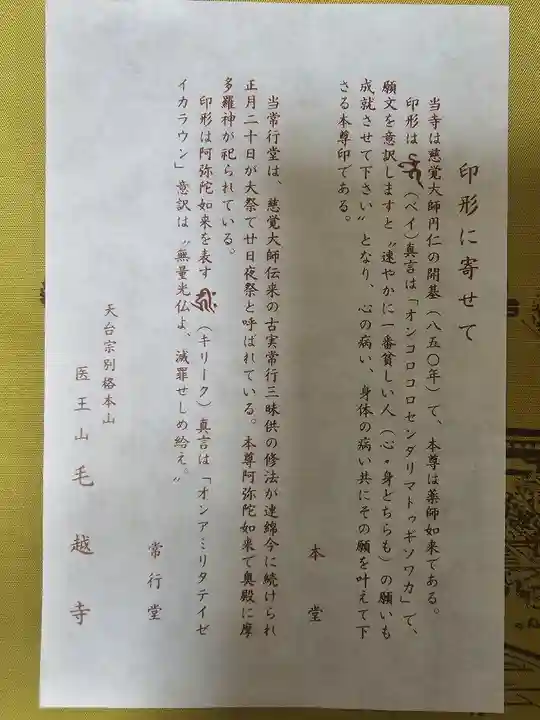 印形に寄せて
当寺は慈覚大師円仁の開基(八五〇年)て、本尊は薬師如来である。
印形は (ベイ)真言は「オンコロコロセンダリマトゥギソワカ」て、
願文を意訳しますと〝速やかに一番貧しい人(心・身どちらも)の願いも
成就させて下さい〟となり、心の病い、身体の病い共にその願を叶えて下
さる本尊印である。
本堂
当常行堂は、慈覚大師伝来の古実常行三昧供の修法が連綿今に続けられ
正月二十日が大祭て廿日夜祭と呼ばれている。本尊阿弥陀如来て奥殿に摩
多羅神が祀られている。
印形は阿弥陀如来を表す (キリーク)真言は「オンアミリタテイゼ
イカラウン」意訳は〝無量光仏よ、滅罪せしめ給え。〟
常行堂
天台宗別格本山
医王山毛越寺